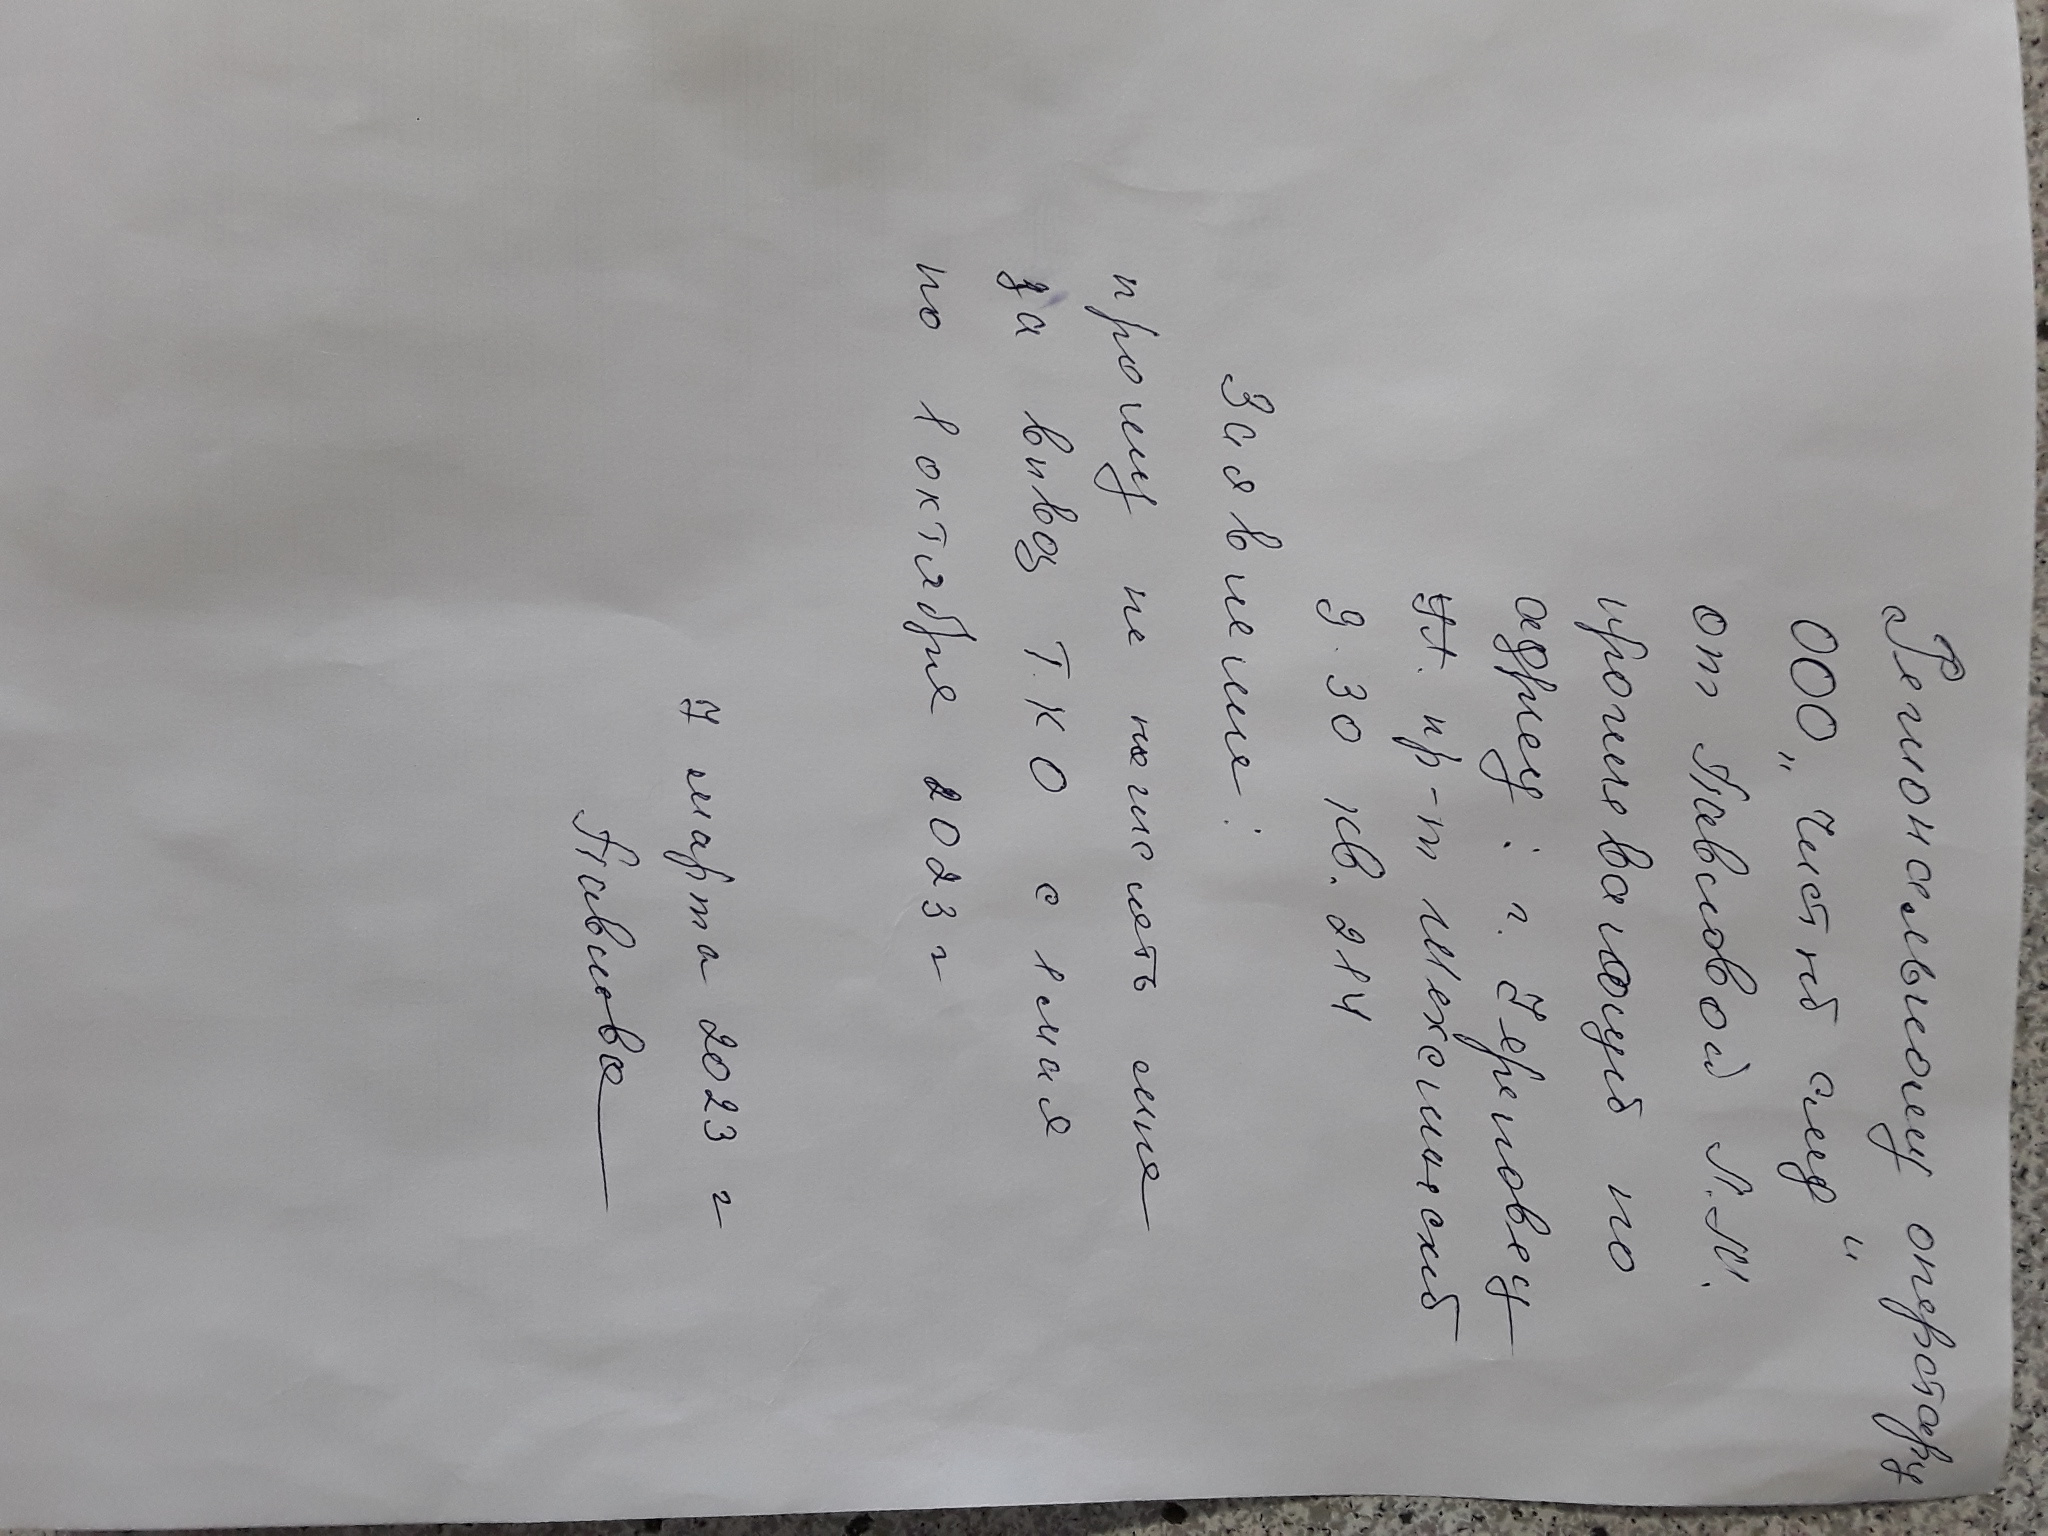 Региональному оператору
ООО „Чистый след“
от Павловой Л.М.
проживающей по
адресу: г. Череповец
пр-т Шекснинский
д. 30 кв. 214
Заявление:
прошу не начислять мне
за вывоз Т.К О с 1 мая
по 1 октября 2023 г
7 марта 2023 г
Павлова